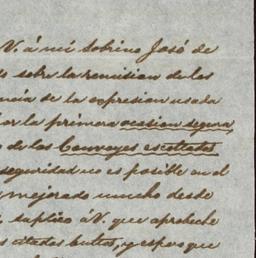 V. á mi sobrino José de
sobre la remision de los
de la expresion usada
por la primera ocasion segura,
de los Convoyes escoltados
seguridad no es posible en el
mejorado mucho desde
suplico á V. que aproveche
citados bultos, y espero que